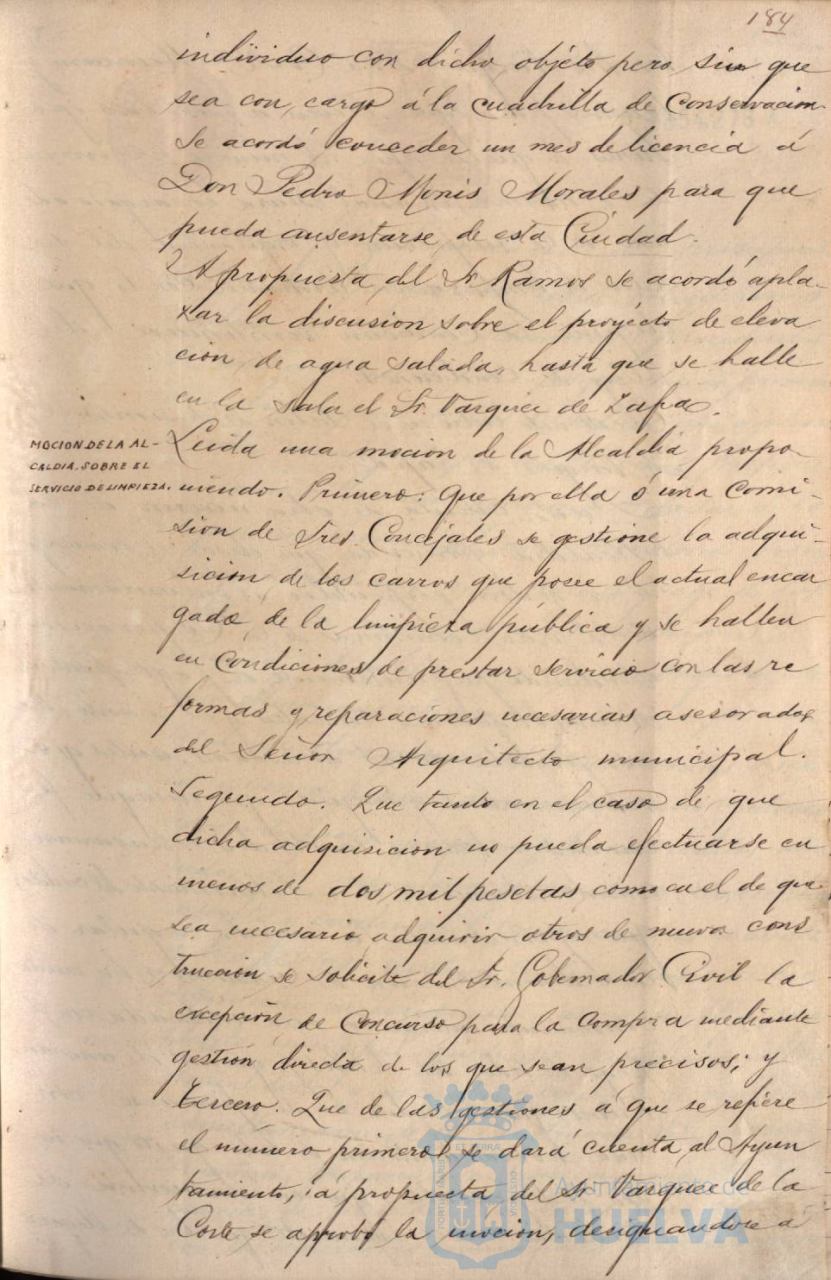 184
individuo con dicho objéto pero sin que
sea con cargo á la cuadrilla de Conservacion.
Se acordó conceder un mes de licencia á
Don Pedro Monis Morales para que
pueda ausentarse de esta Ciudad.
A propuesta del Sr Ramos se acordó apla-
zar la discusion sobre el proyécto de eleva
cion de agua salada, hasta que se halle
en la sala el Sr. Vazquez de Zafra.
MOCION DE LA AL-
CALDIA. SOBRE EL
SERVICIO DE LIMPIEZA.
Leida una mocion de la Alcaldia propo-
niendo. Primero: Que por ella ó una Comi-
sion de Tres Concejales se gestione la adqui-
sicion de los carros que posee el actual encar
gado de la limpieza pública y se hallen
en condiciones de prestar servicio con las re
formas y reparaciones necesarias asesorados
del Señor Arquitecto municipal.
Segundo. Que tanto en el caso de que
dicha adquisicion no pueda efectuarse en
menos de dos mil pesetas como en el de que
sea necesario adquirir otros de nueva cons
truccion se solicite del Sr. Gobernador Civil la
excepción de Concurso para la compra mediante
gestión directa de los que sean precisos; y
tercero. Que de las gestiones á que se refiere
el número primero se dará cuenta al Ayun
tamiento, á propuesta del Sr Vazquez de la
Corte se aprobó la mocion, designandose á
Ayuntamiento de
HUELVA